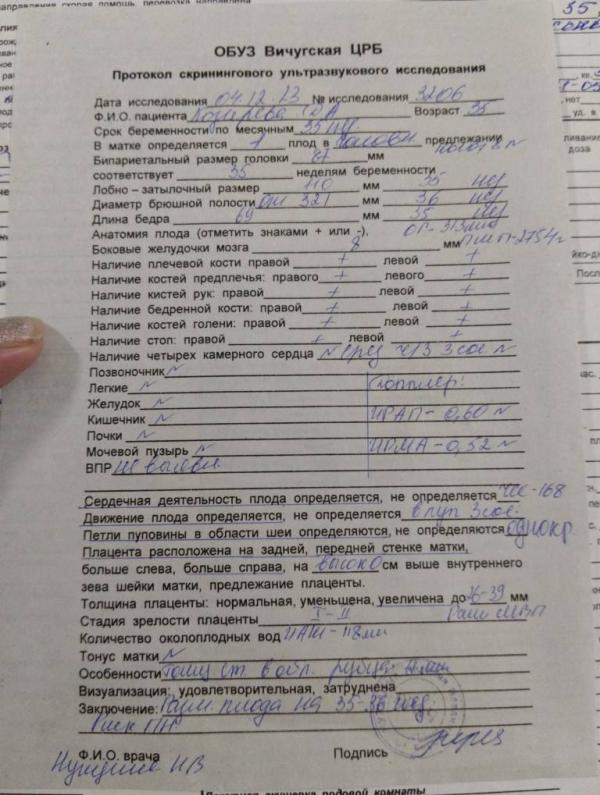 ОБУЗ Вичугская ЦРБ
Протокол скринингового ультразвукового исследования
Дата исследования 04.12.23 № исследования 3206
Ф.И.О. пациента Возраст 35
Срок беременности по месячным 35 нед
В матке определяется 1 плод в головн. предлежании
Бипариетальный размер головки 87 мм
соответствует 35 неделям беременности
Лобно – затылочный размер 110 мм 35 нед
Диаметр брюшной полости ож 321 мм 36 нед
Длина бедра 69 мм 35 нед
Анатомия плода (отметить знаками + или -). ОГ- 313мм
Боковые желудочки мозга 8 мм ПМП-2754г
Наличие плечевой кости правой + левой +
Наличие костей предплечья: правого + левого +
Наличие кистей рук: правой + левой +
Наличие бедренной кости: правой + левой +
Наличие костей голени: правой + левой +
Наличие стоп: правой + левой +
Наличие четырех камерного сердца N срез ч/з 3 сос N
Позвоночник N
Легкие N Допплер:
Желудок N
Кишечник N ИРАП- 0,60 N
Почки N
Мочевой пузырь N ИРМА-0,52 N
ВПР не выявл.
Сердечная деятельность плода определяется, не определяется ЧСС-168
Движение плода определяется, не определяется в пуп 3 сос.
Петли пуповины в области шеи определяются, не определяются однокр.
Плацента расположена на задней, передней стенке матки,
больше слева, больше справа, на высоко см выше внутреннего
зева шейки матки, предлежание плаценты.
Толщина плаценты: нормальная, уменьшена, увеличена до 36-39 мм
Стадия зрелости плаценты I-II Расш МВП
Количество околоплодных вод ИАЖ-118мм
Тонус матки N
Особенности Толщ ст. в обл. рубца
Визуализация: удовлетворительная, затруднена
Заключение: плода на 35-36 нед.
Риск ПН
Ф.И.О. врача Подпись